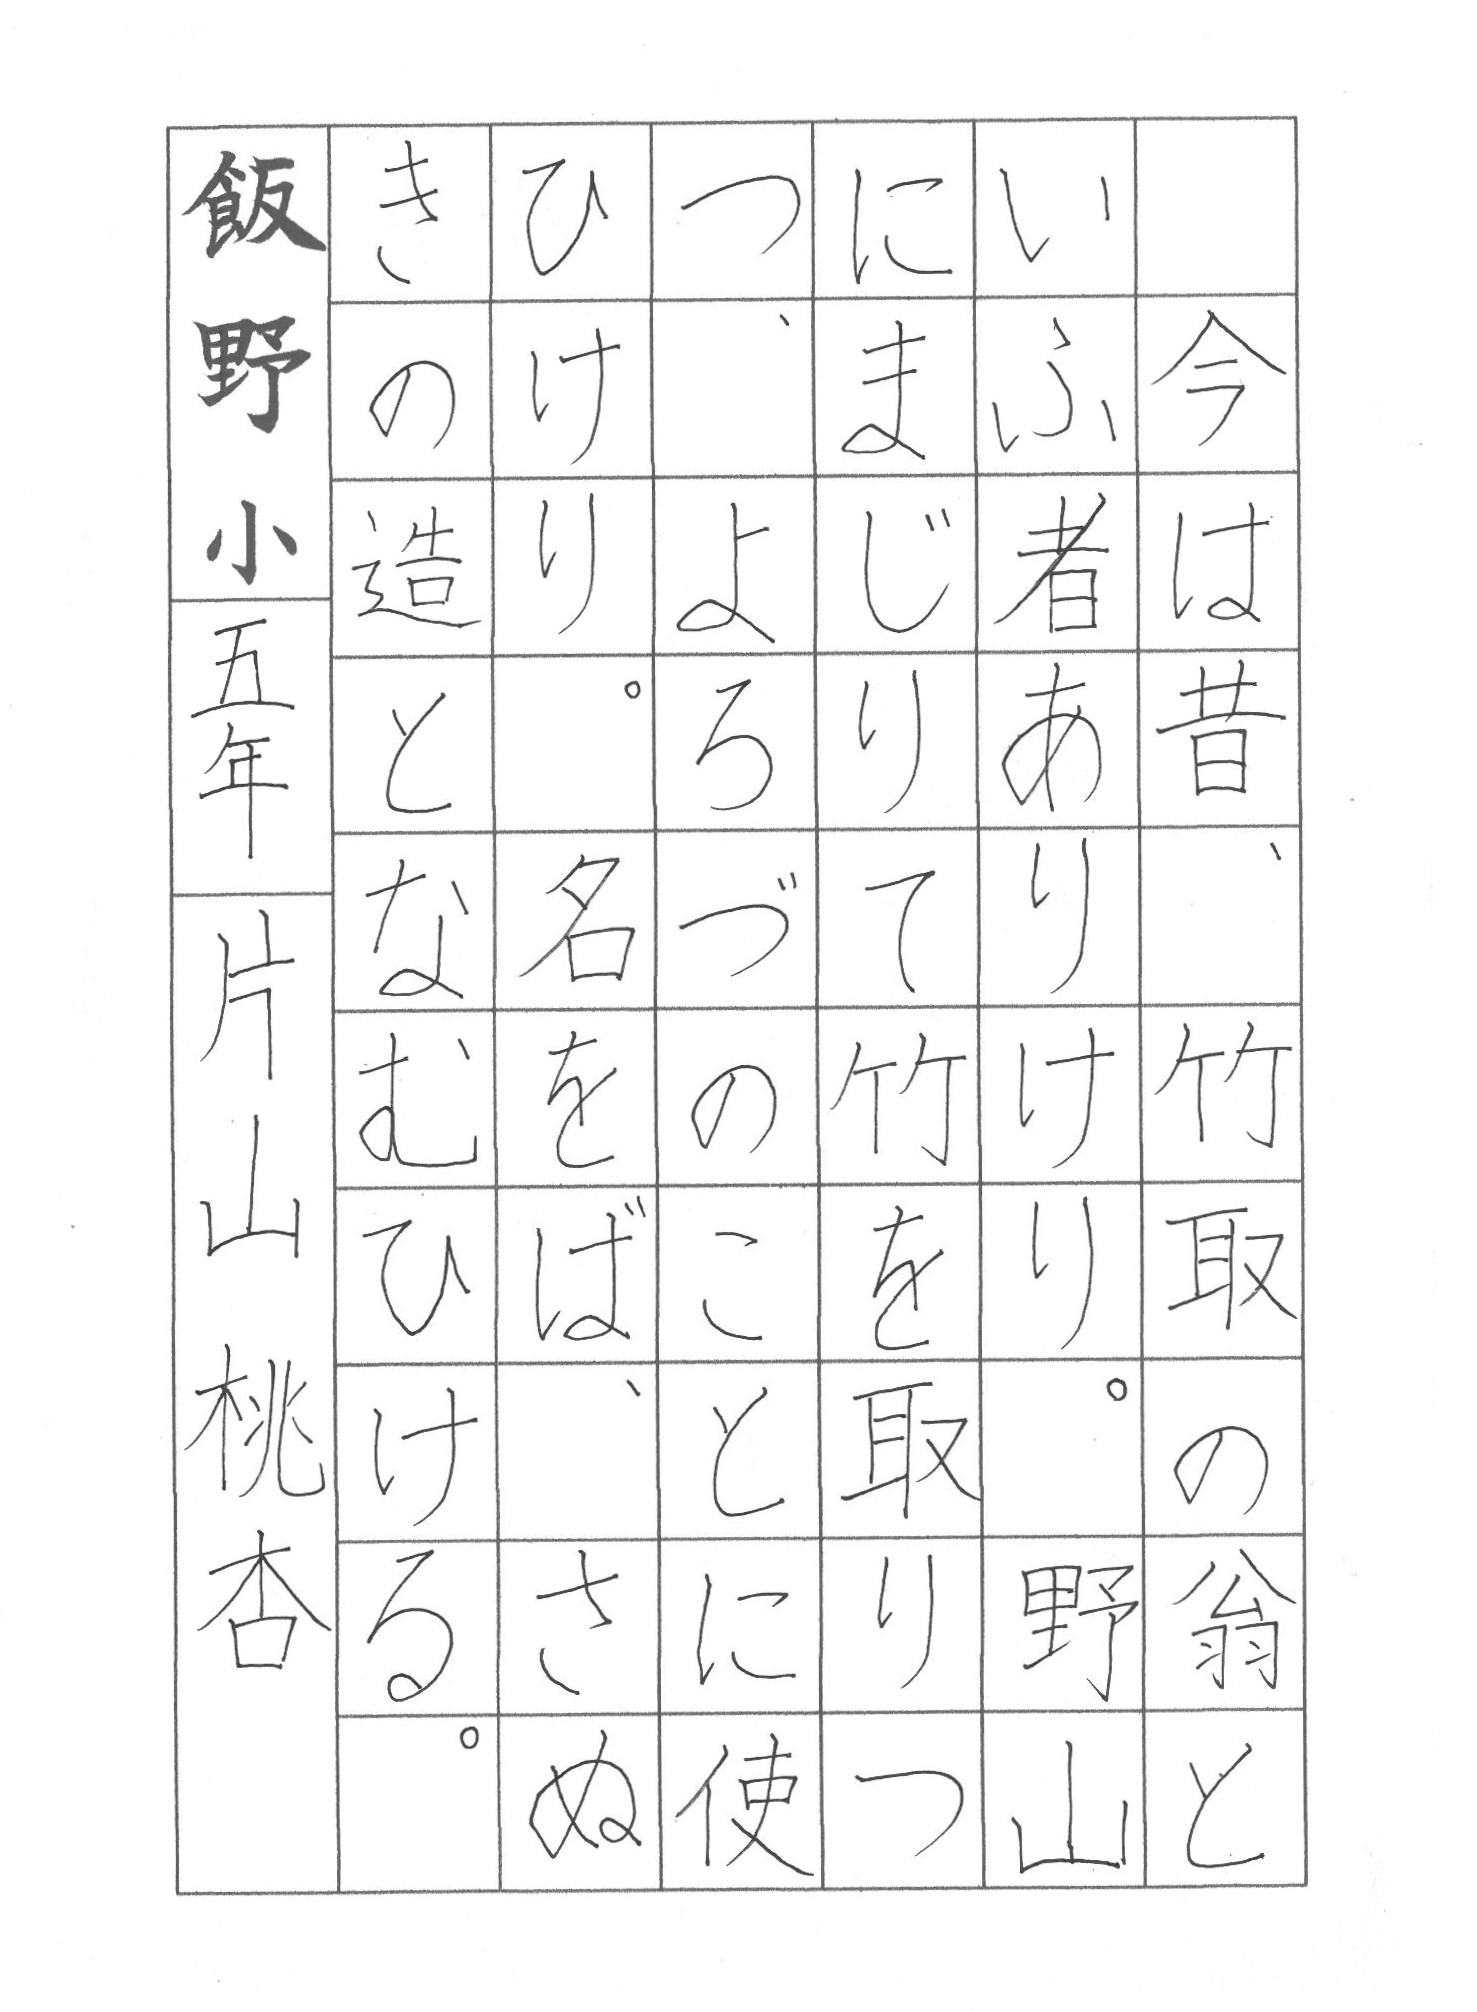 今は昔、竹取の翁と
いふ者ありけり。野山
にまじりて竹を取りつ
つ、よろづのことに使
ひけり。名をば、さぬ
きの造となむひける。
飯野小 五年 片山桃杏